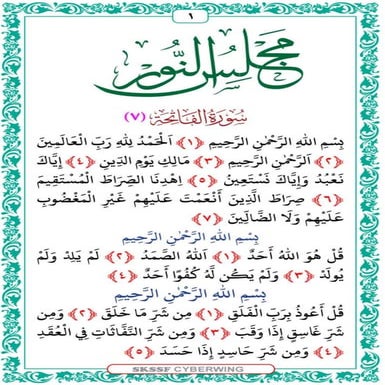 ١
مجلس النور
سورة الفاتحة (٧)
بِسْمِ اللهِ الرَّحْمٰنِ الرَّحِيمِ ﴿١﴾ اَلْحَمْدُ لِلهِ رَبِّ الْعَالَمِينَ
﴿٢﴾ اَلرَّحْمٰنِ الرَّحِيمِ ﴿٣﴾ مَالِكِ يَوْمِ الدِّينِ ﴿٤﴾ إِيَّاكَ
نَعْبُدُ وَإِيَّاكَ نَسْتَعِينُ ﴿٥﴾ اِهْدِنَا الصِّرَاطَ الْمُسْتَقِيمَ
﴿٦﴾ صِرَاطَ الَّذِينَ أَنْعَمْتَ عَلَيْهِمْ غَيْرِ الْمَغْضُوبِ
عَلَيْهِمْ وَلَا الضَّالِّينَ ﴿٧﴾
بِسْمِ اللهِ الرَّحْمٰنِ الرَّحِيمِ
قُلْ هُوَ اللهُ أَحَدٌ ﴿١﴾ اَللهُ الصَّمَدُ ﴿٢﴾ لَمْ يَلِدْ وَلَمْ
يُولَدْ ﴿٣﴾ وَلَمْ يَكُن لَّهُ كُفُوًا أَحَدٌ ﴿٤﴾
بِسْمِ اللهِ الرَّحْمٰنِ الرَّحِيمِ
قُلْ أَعُوذُ بِرَبِّ الْفَلَقِ ﴿١﴾ مِن شَرِّ مَا خَلَقَ ﴿٢﴾ وَمِن
شَرِّ غَاسِقٍ إِذَا وَقَبَ ﴿٣﴾ وَمِن شَرِّ النَّفَّاثَاتِ فِي الْعُقَدِ
﴿٤﴾ وَمِن شَرِّ حَاسِدٍ إِذَا حَسَدَ ﴿٥﴾
SKSSF CYBERWING